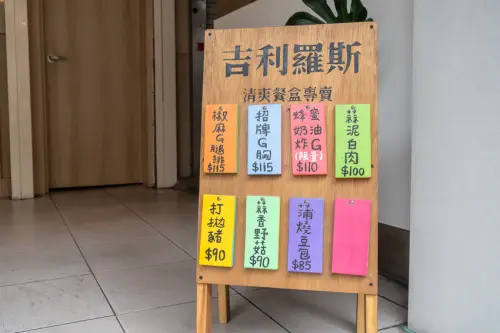 吉利羅斯
清爽餐盒專賣
椒麻G腿排
$115
招牌G胸
$115
蜂蜜奶油炸G
(限量)
$110
蒜泥白肉
$100
打拋豬
$90
蒜香野菇
$90
蒲燒豆包
$85